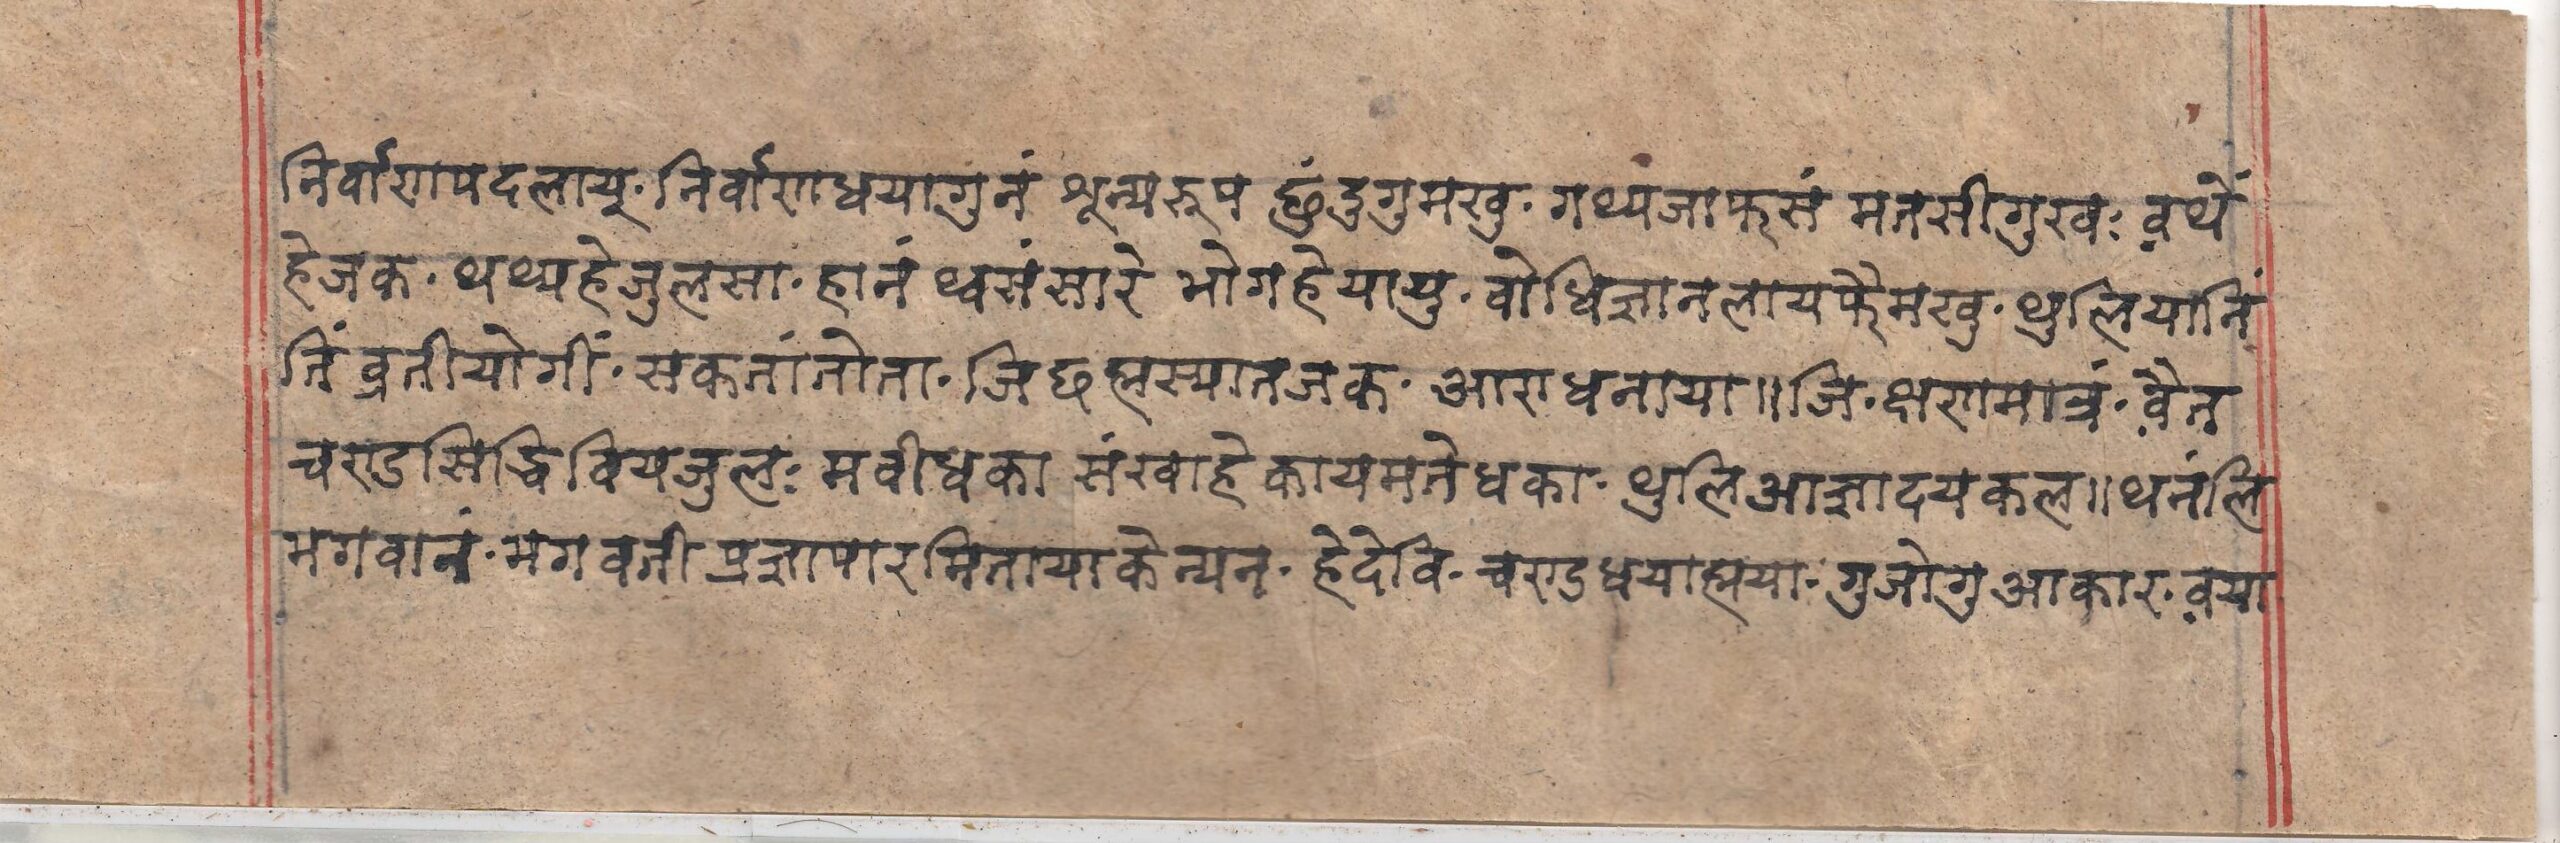 निर्वाणपदलायू. निर्वाणधयागुनं श्रून्यरूप छुंदुगुमखु. गथ्यंजाफसं मनसीगुखः व़थें
हेजक. थथ्यहेजुलसा. हानं थ्वसंसारे भोगहेयायु. वोधिज्ञानलायफैमखु. थुलियानिं
निं व्रतीयोगीं. सकतांतोता. जिछह्मस्यातजक. आराधनाया॥ जि. क्षणमात्रं. व़ैत
चण्डसिद्धिवियजुलः मवीधका संखाहे कायमतेधका. थुलिआज्ञादयकल॥ थनंलि
भगवानं. भगवती प्रज्ञापारमितायाकेन्यन. हेदेवि. चण्डधयाह्मया. गुजोगुआकार. व़या